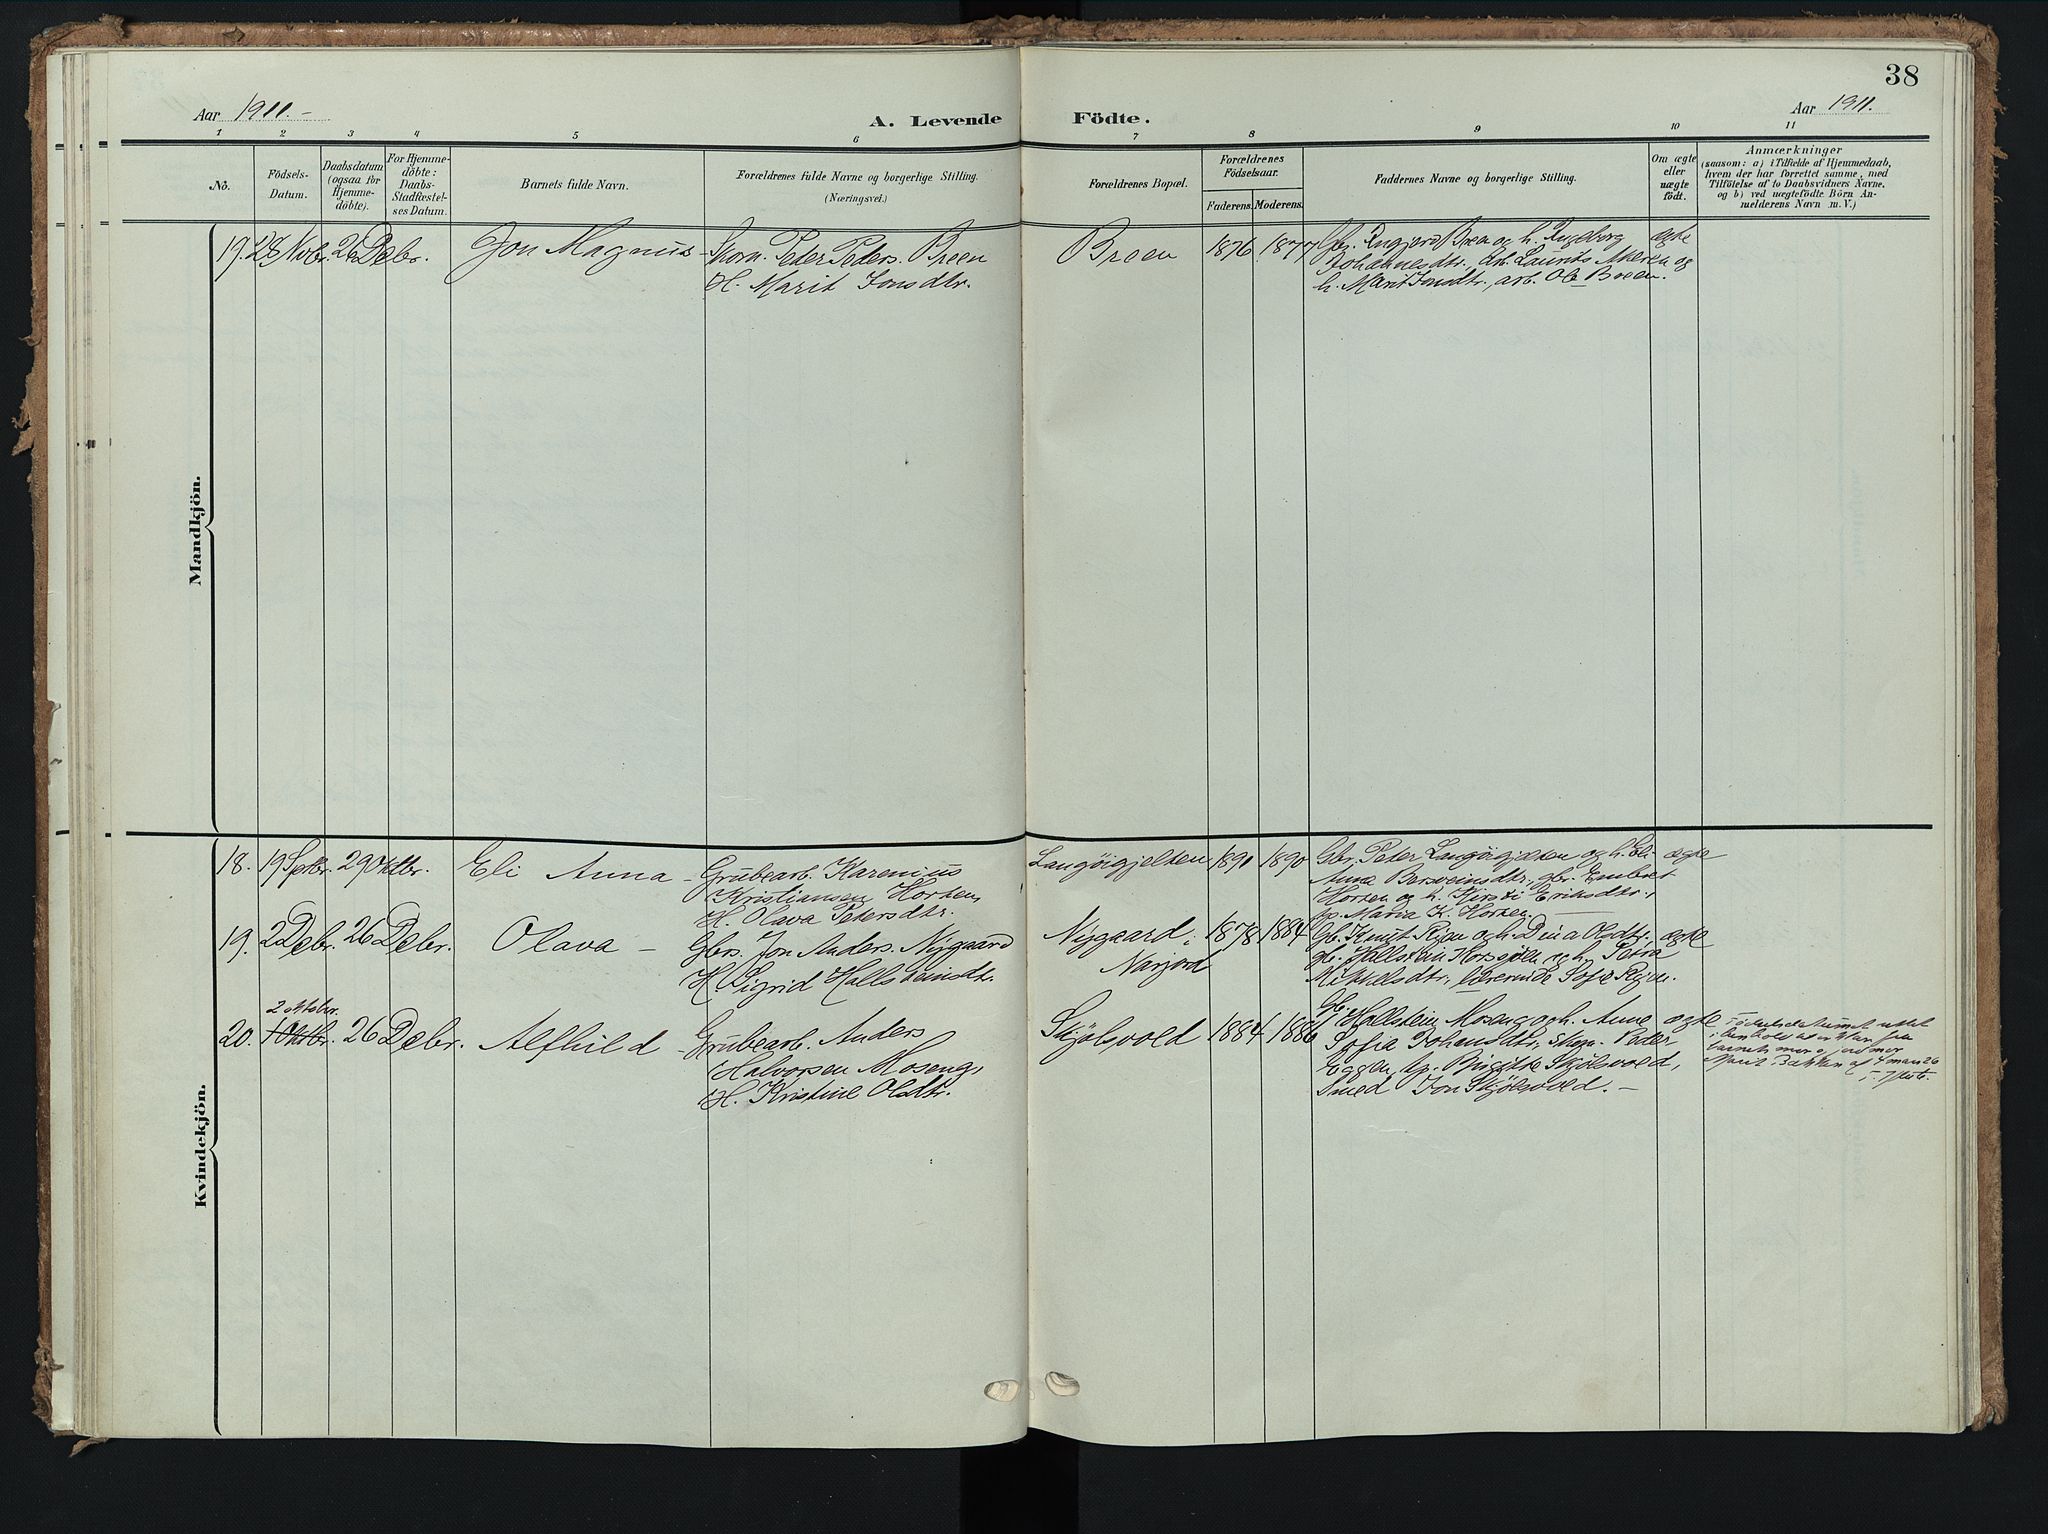 38
Aar 1911.-
A. Levende Födte.
Aar 1911.
1 2 3 4 5 6 7 8 9 10 11
No.
Födsels-
Datum.
Daabsdatum
(ogsaa for
Hjemme-
döbte).
For Hjemme-
döbte:
Daabs-
Stadfæstel-
ses Datum.
Barnets fulde Navn.
Forældrenes fulde Navne og borgerlige Stilling.
(Næringsvei.)
Forældrenes Bopæl.
Forældrenes
Födselsaar.
Faderens. Moderens.
Faddernes Navne og borgerlige Stilling.
Om ægte
eller
uægte
födt.
Anmærkninger
(saasom: a) i Tilfælde af Hjemmedaab,
hvem der har forrettet samme, med
Tilföielse af to Daabsvidners Navne,
og b) ved uægtefödte Börn An-
melderens Navn m. V.)
Mandkjön.
19. 28 Novbr. 26 Debr. Jon Magnus - Skom. Peder Peders. Breen
H. Marit Jonsdtr.
Breen 1876 1877 Gbr. Ingjard Breen og h. Ingeborg ægte
Johannesdtr., arb. Laurits Moren og
h. Marit Jonsdtr., arb. Ole Breen.
Kvindekjön.
18. 19 Septbr. 29 Oktbr. Eli Anna - Grubearb. Karenius
Kristiansen Horten,
H. Olava Pedersdtr.
Langöigjelten 1891 1890 Gbr. Peder Langöigjelten og h. Eli ægte
Anna Bersveinsdtr., gbr. Embret
Horten og h. Kjersti Eriksdtr.,
tp. Maria K. Horten.
19. 2 Debr. 26 Debr. Olava - Gbrs. Jon Anders. Nygaard
H. Sigrid Hallsteinsdtr.
Nygaard i
Narjord
1878 1884 Gb. Knut Rjen og h. Dina Olsdtr., ægte
gb. Hallstein Horsjöen og h. Petra
Mikkelsdtr., lærerinde Sofie Rjen.
2 oktober
20. 1 Oktbr. 26 Debr. Alfhild - Grubearb. Anders
Halvorsen Moseng,
H. Kristine Olsdtr.
Skjölsvold 1884 1886 Gb. Hallstein Moseng og h. Anne ægte
Sofia Johansdtr., Skom. Peder
Eggen, tp. Birgitte Skjölsvold,
Smed Jon Skjölsvold. -
Födselsdatumet rettet
i henhold til erklæring fra
barnets mor og jordmor
Marit Bakken af 4 mars 26